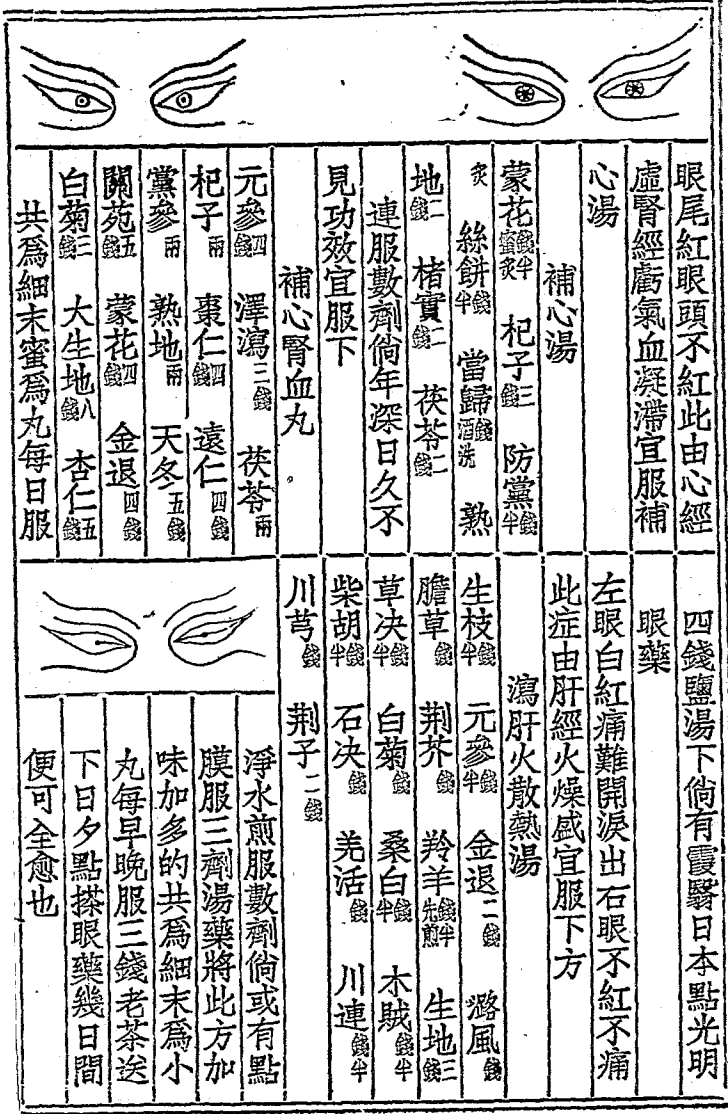 眼尾紅眼頭不紅此由心經
虛腎經虧氣血凝滯宜服補
心湯
補心湯
蒙花錢半蜜炙 杞子三錢 防黨錢半
炙 絲餅錢半 當歸錢酒洗 熟
地二錢 楮實二錢 茯苓二錢
連服數劑倘年深日久不
見功效宜服下
補心腎血丸
元參四錢 澤瀉二錢 茯苓兩
杞子兩 棗仁四錢 遠仁四錢
黨參兩 熟地兩 天冬五錢
關苑五錢 蒙花四錢 金退四錢
白菊三錢 大生地八錢 杏仁五錢
共爲細末蜜爲丸每日服
四錢鹽湯下倘有霞翳日本點光明
眼藥
左眼白紅痛難開淚出右眼不紅不痛
此症由肝經火燥盛宜服下方
瀉肝火散熱湯
生枝錢半 元參錢半 金退二錢 潞風錢
膽草錢 荆芥錢 羚羊錢半先煎 生地三錢
草决錢半 白菊錢 桑白錢半 木賊錢半
柴胡錢半 石决錢 羌活錢 川連錢半
川芎錢 荆子二錢
淨水煎服數劑倘或有點
膜服三劑湯藥將此方加
味加多的共爲細末爲小
丸每早晚服三錢老茶送
下日夕點搽眼藥幾日間
便可全愈也